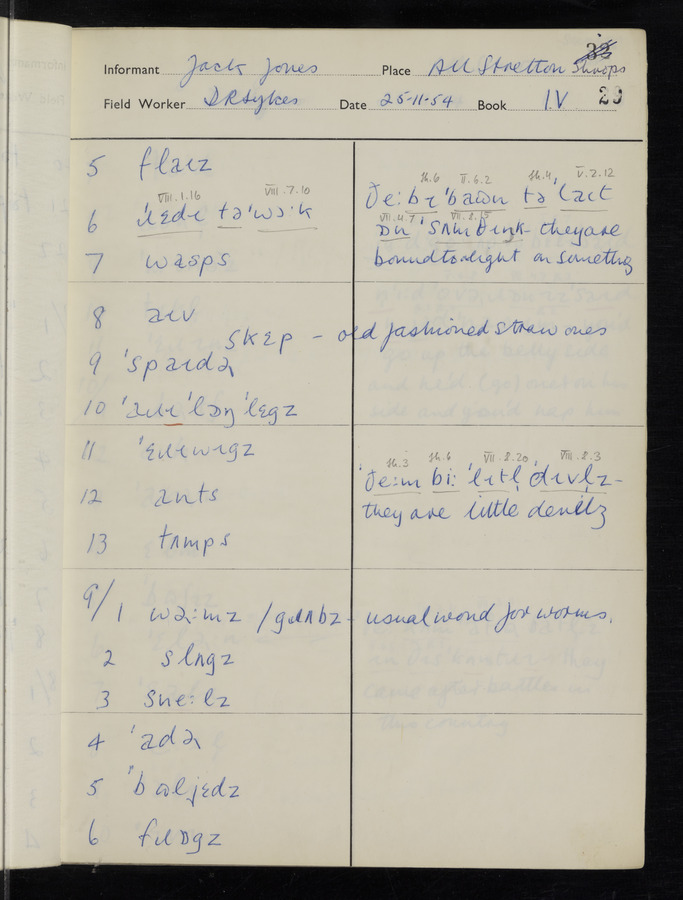 33
Informant Jack Jones Place All Stretton Shrops
Field Worker D R Sykes Date 25-11-54 Book IV 29
5 flaɪz
VIII.1.16 VIII.7.10
6 ˈɹɛdɪ tə ˈwəːk
7 wasps
8 aɪv
skɛp – old fashioned straw ones
9 ˈspaɪdə
10 ˈlɒŋ ˈlɛgz
11 ˈɛɹɪwɪgz
12 ants
13 tʌmps
9/1 wəːmz / gɹʌbz – usual word for worms.
2 slʌgz
3 sneːlz
4 ˈadə
5
6 fɹɒgz
sh.6 V.6.2 sh.4 V.2.12
ðeː bɪ ˈbaʊn tə ˈlaɪt
VII.4.7 VII.8.15
ɒn ˈsʌmθɪŋk – they are
bound to alight on something
sh.3 sh.6 VII.8.20 VIII.8.3
ˈðeːm biː ˈlɪtl ˈdɪvlz –
they are little devils